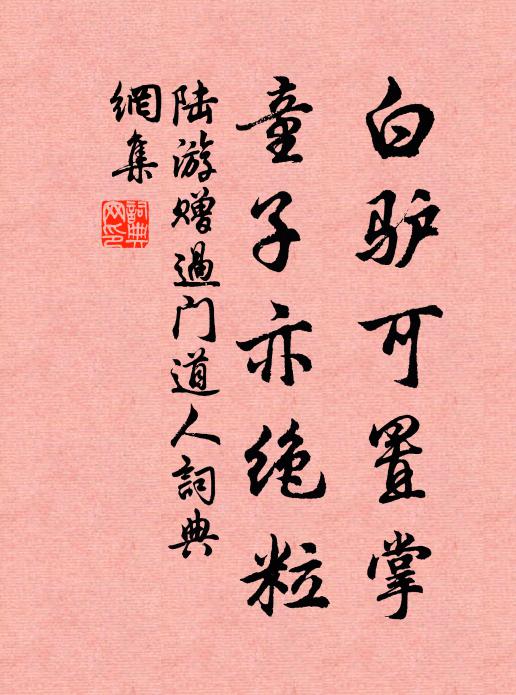 白驴可置掌
童子亦绝粒
陆游赠過门道人詞典
網集
詞典
网印